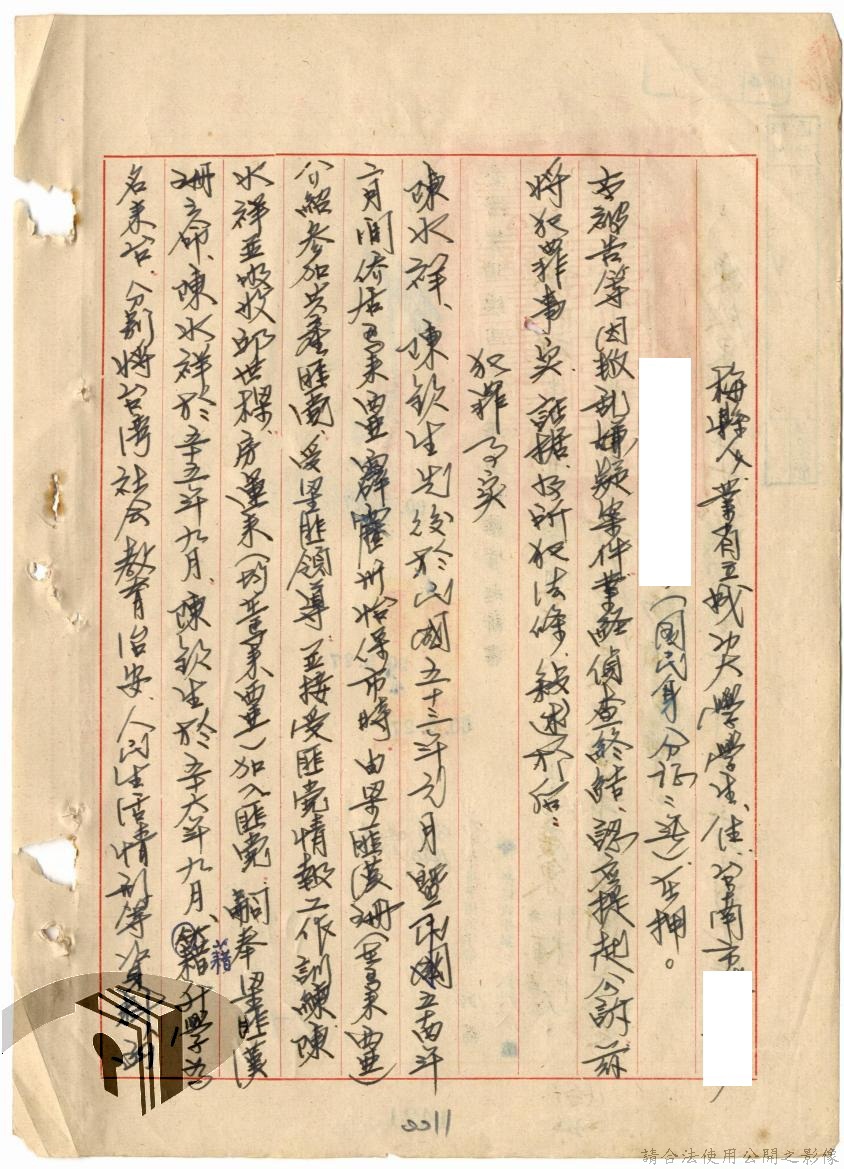 梅縣人、業有立成功大學學生、住、台南市
(國民身分証：無)在押。
右被告等因叛乱嫌疑案件業經偵查終結、認應提起公訴茲
將犯罪事实、証据、及所犯法條、敍述於后：
犯罪事实
陳水祥、陳欽生先後於民國五十三年元月暨民國五十四年
二月間僑居馬來亞霹靂州怡保市時由梁匪漢珊(在馬來亞)
介紹參加共產匪党、受梁匪領導並接受匪党情報工作訓練陳
水祥並吸收邱世樑、房運來(均在馬來亞)加入匪党嗣奉梁匪漢
珊之命、陳水祥於五十五年九月、陳欽生於五十六年九月、藉升學為
名來台、分別將台湾社会教育治安、人民生活情形等資料函
藉
0011
請合法使用公開之影像